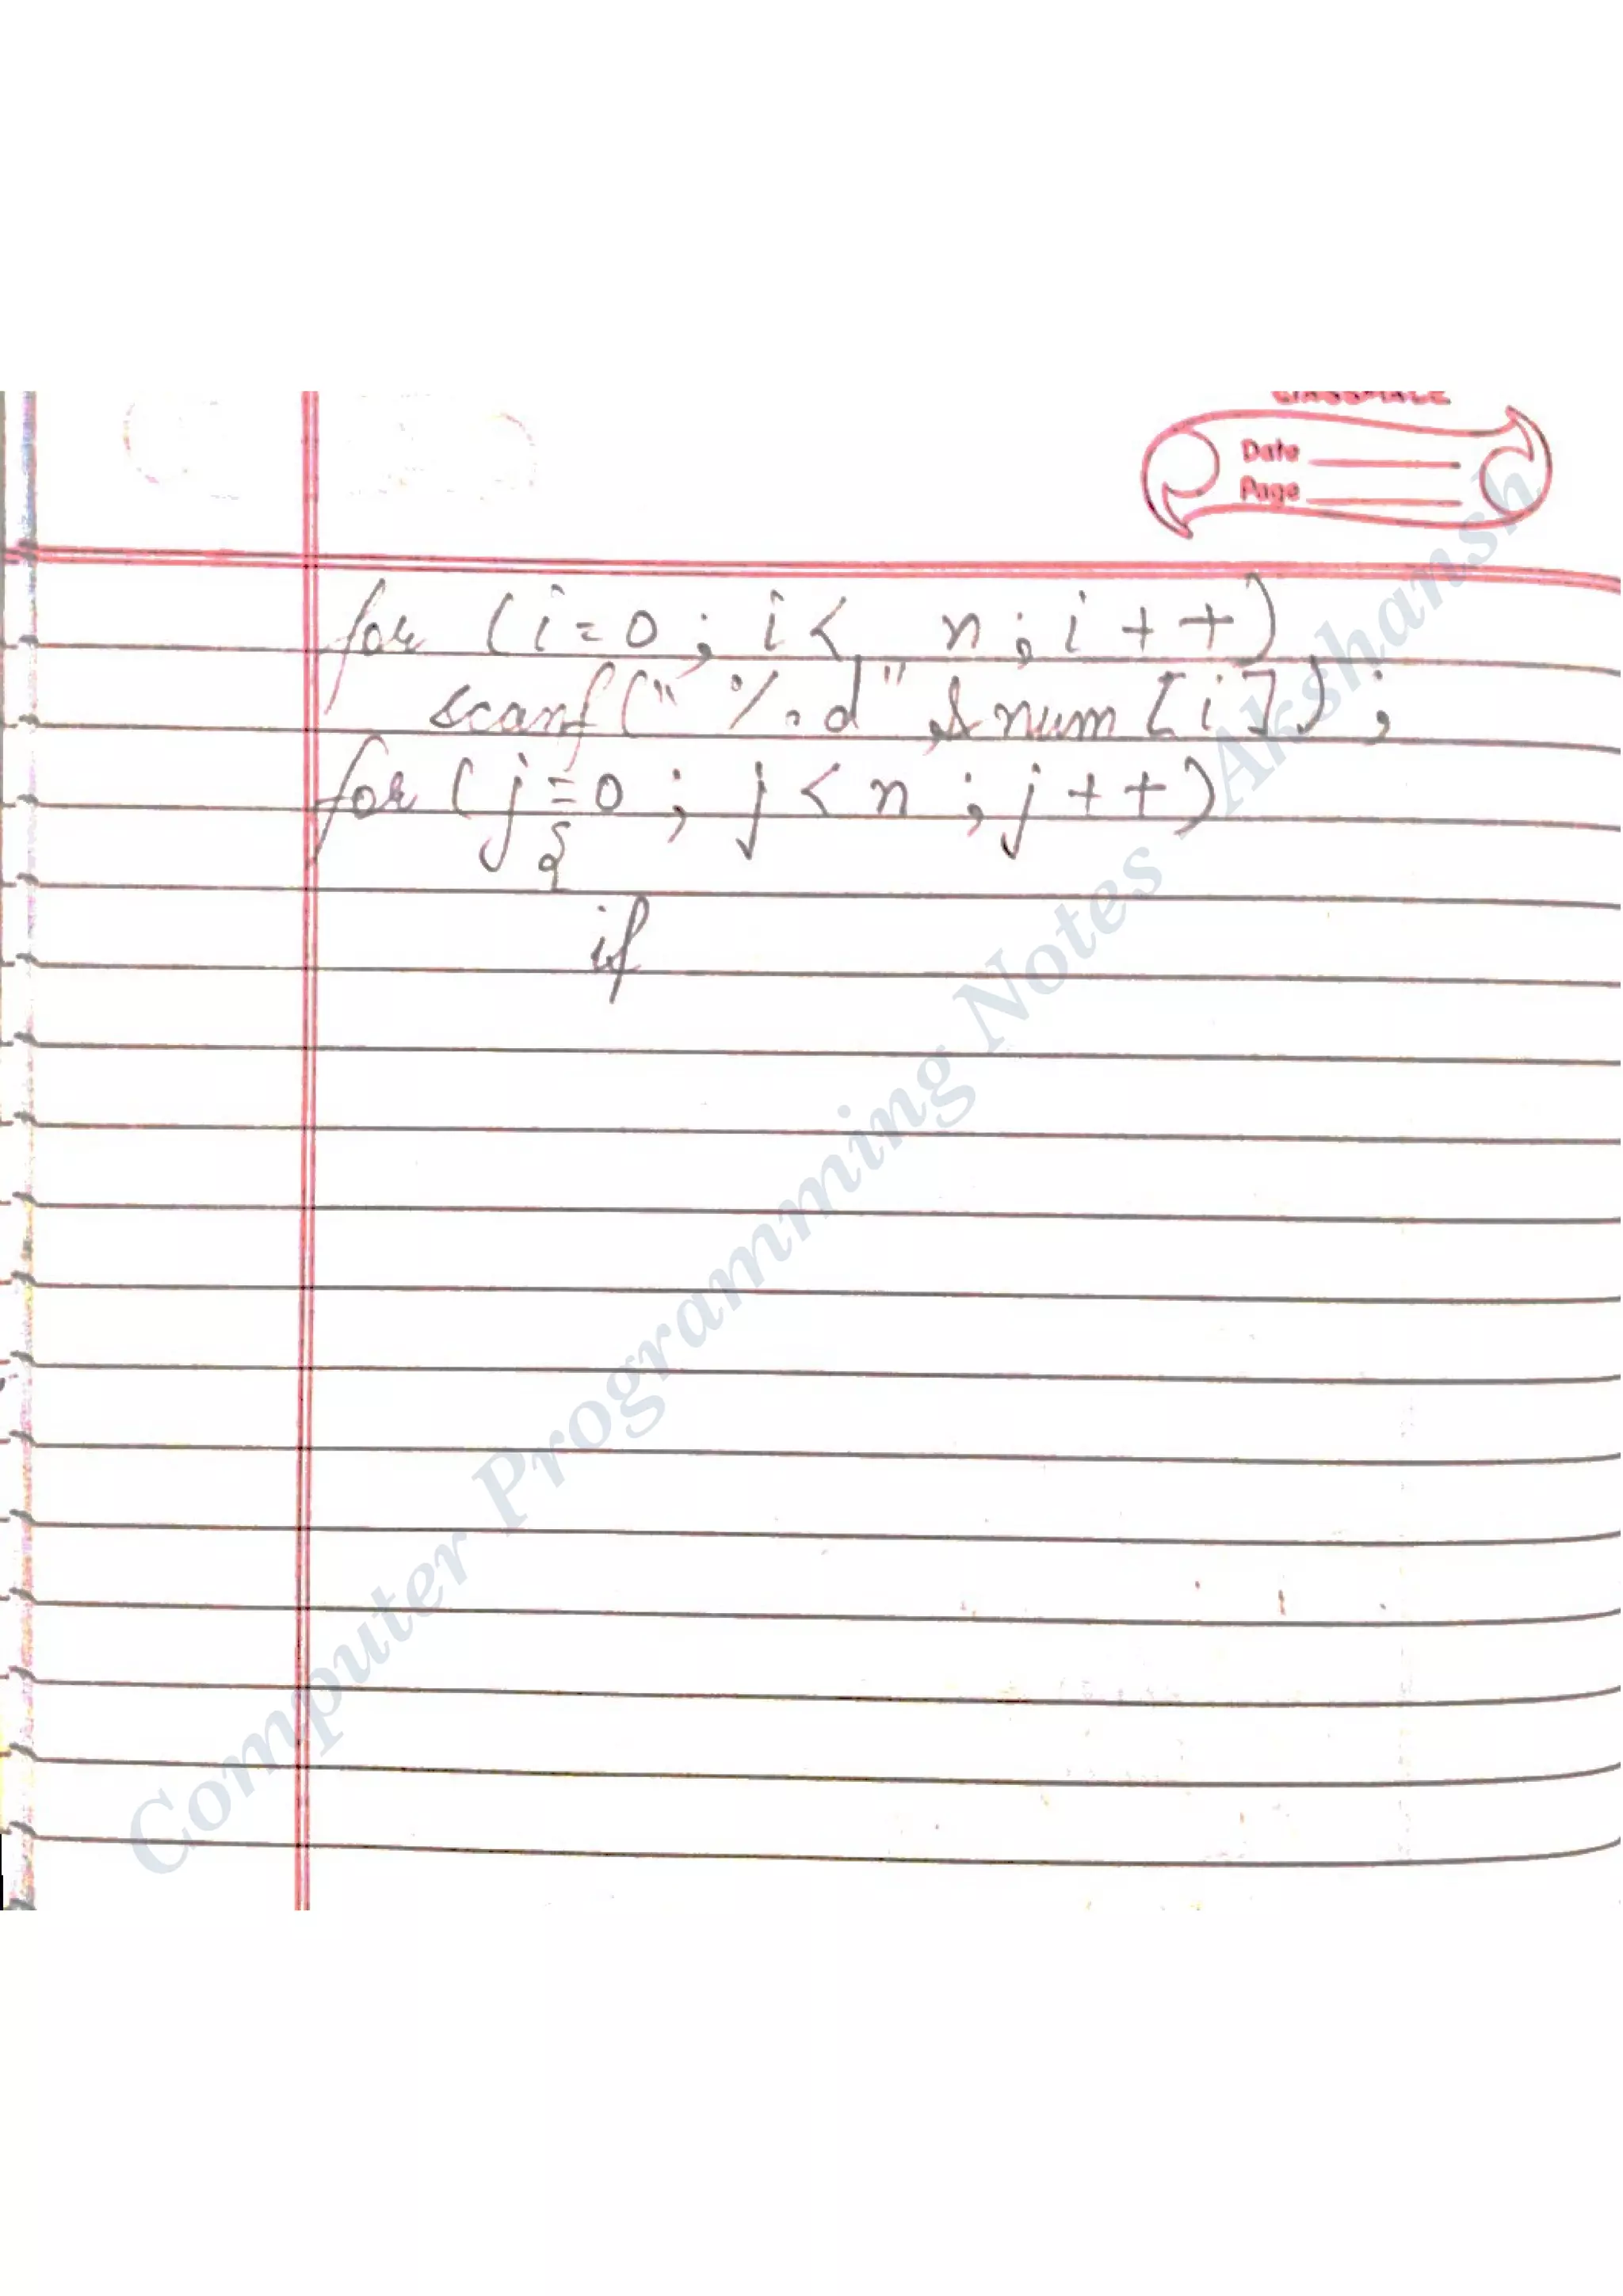 classmate
Date
Page
for (i=0; i< n; i++)
scanf("%d", &num[i]);
for (j=0; j<n; j++)
{
if
Computer Programming Notes Akshansh